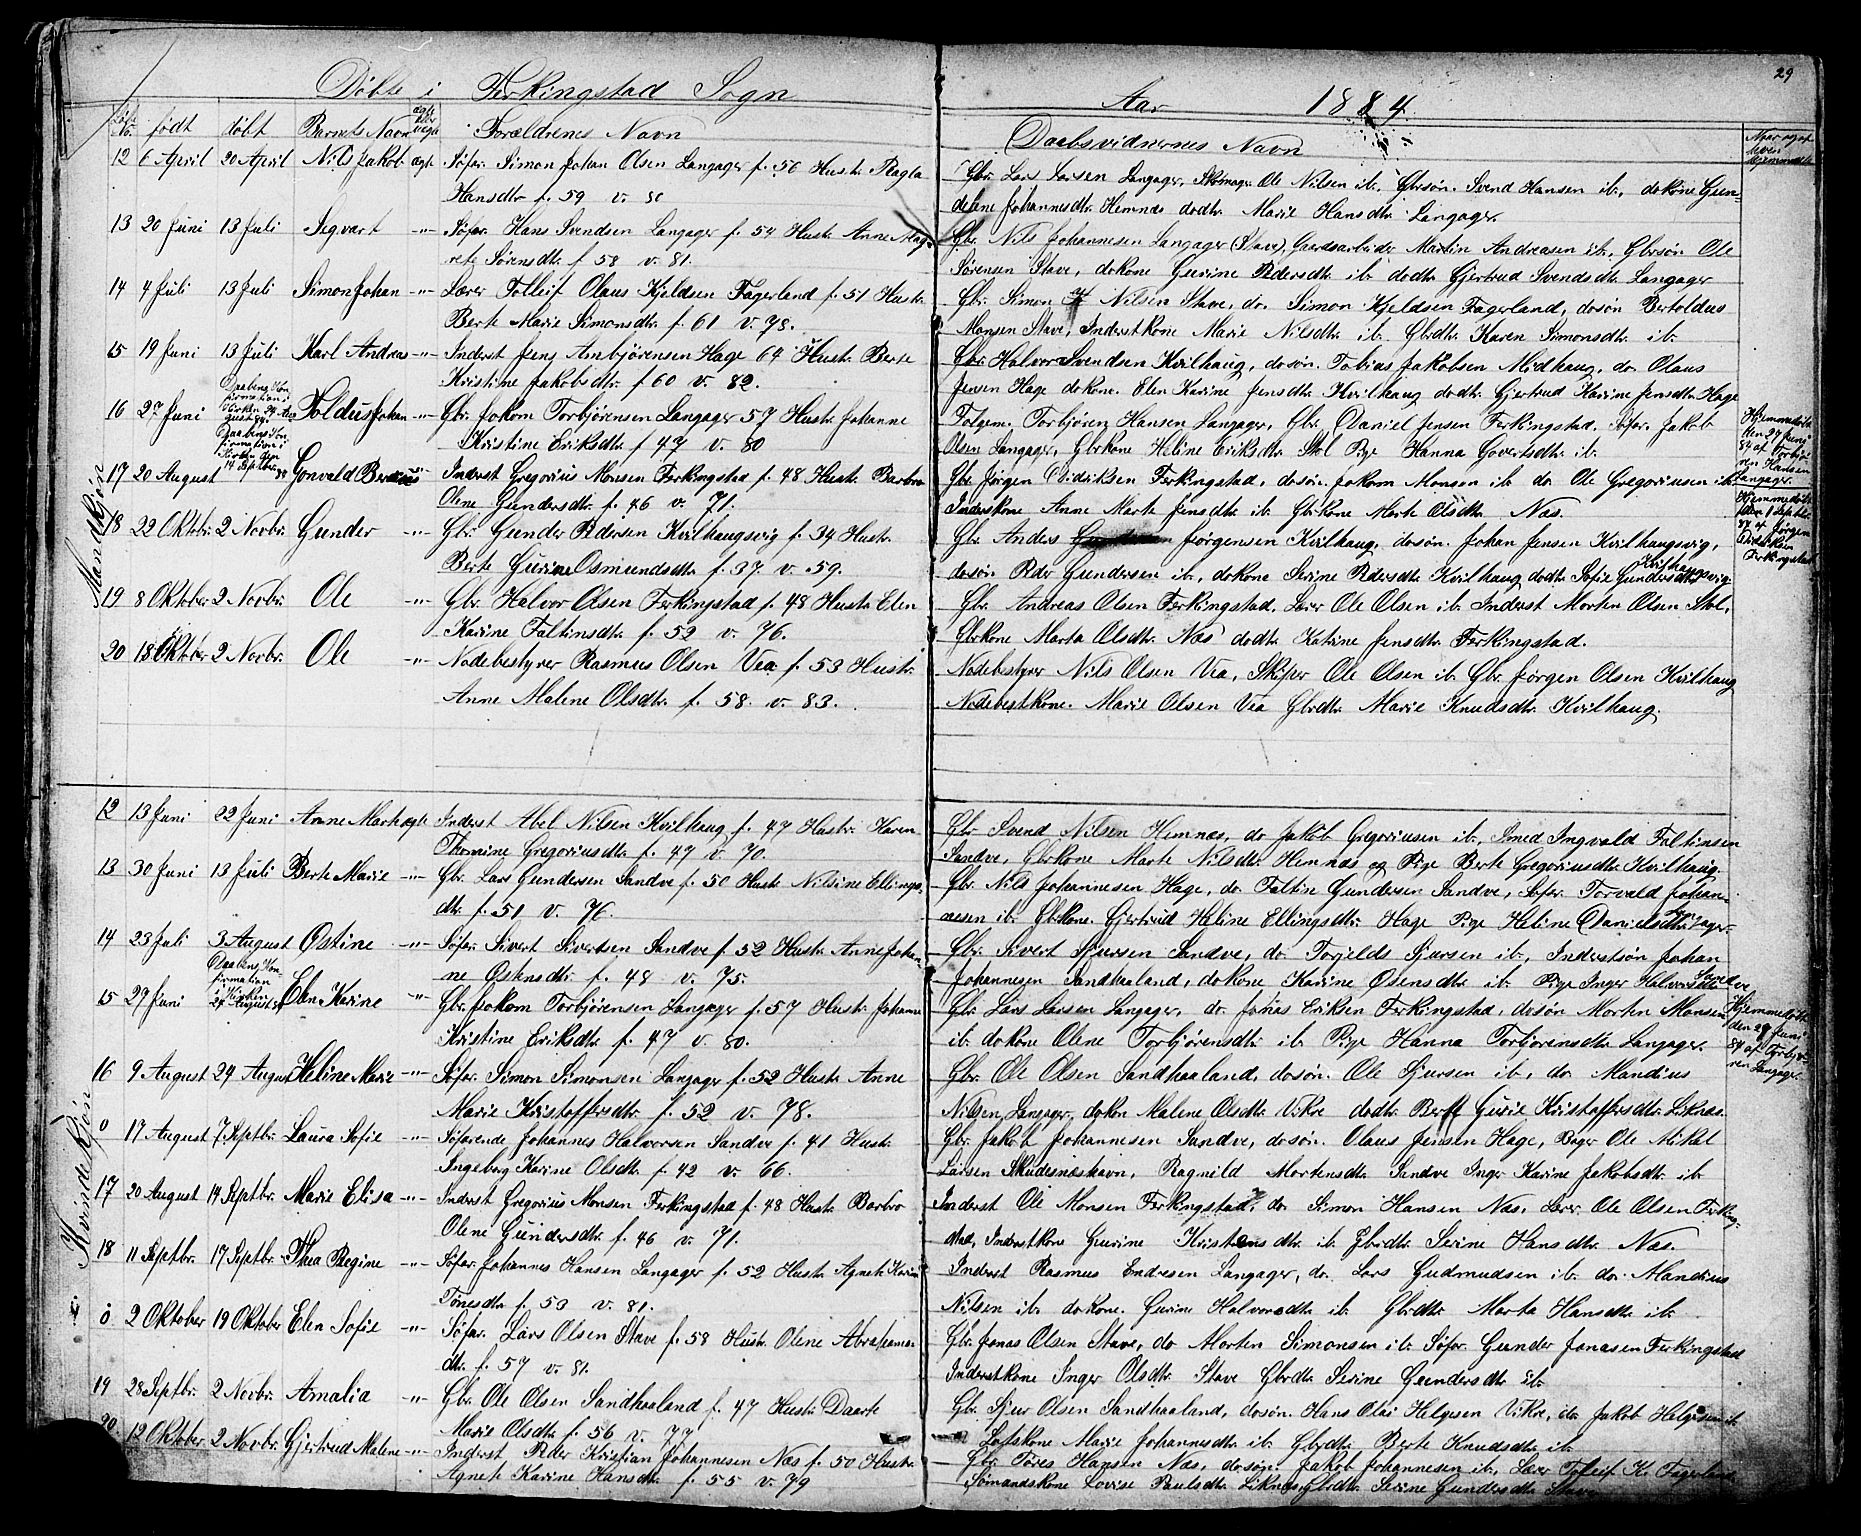 29
Döbte i Ferkingstad Sogn
Aar 1884.
Löbe No. födt döbt Barnets Navn ægte eller uægte Forældrenes Navn
Daabsvidnernes Navn
Naar og af hvem hjemmedöbt
Mandkjön
12 6 April 20 April Nils Jakob ægte Söfar. Simon Johan Olsen Langager f. 56 Hustr. Ragla
Hansdtr f. 59 v. 80
Gbr. Lars Larsen Langager, Skomager Ole Nilsen ib. Gbrsön. Svend Hansen ib., do kone Gun-
delene Johannesdtr. Hemnæs do dtr. Marie Hansdtr. Langager.
13 20 Juni 13 Juli Sigvart -"- Söfar. Hans Svendsen Langager f. 54 Hustr. Anne Mag-
rete Sörensdtr. f 58 v. 81.
Gbr. Nils Johannesen Langager (Stave), Gaardsarbeider Martin Andreasen ib., Gbrsön Ole
Sörensen Stave, do kone Gurine Pedersdtr. ib. do dtr. Gjertrud Svendsdtr. Langager
14 4 Juli 13 Juli Simon Johan -"- Lærer Tolleif Olaus Kjeldsen Fagerland f. 51 Hustr.
Berte Marie Simonsdtr. f. 61 v. 78.
Gbr. Simon Nilsen Stave, do. Simon Kjeldsen Fagerland, do sön Bertoldus
Monsen Stave, Inderstkone Marie Nilsdtr. ib. Gbrdtr. Karen Simonsdtr. ib.
15 19 Juni 13 Juli Karl Andreas -"- Inderst Jens Anbjörensen Hage 64 Hustr. Berte
Kristine Jakobsdtr. f 60 v. 82.
Gbr. Halvor Svendsen Kvilhaug, do sön. Tobias Jakobsen Midhaug, do. Olaus
Jensen Hage do kone. Elen Karine Jensdtr. Kvilhaug do dtr. Gjertrud Karine Jensdtr. Hage
16 27 Juni Daabens Kon-
firmation i
Kirken 24 Au-
gust 84 Toldus Johan -"- Gbr. Jokom Torbjörensen Langager 57 Hustr. Johanne
Kristine Eriksdtr. f 47 v. 80
Folgem. Torbjören Hansen Langager, Gbr. Daniel Jensen Ferkingstad. Söfar. Jakob
Olsen Langager, Gbrkone Heline Eriksdtr. Stol Pige Hanna Govertsdtr. ib.
Hjemmedöbt
den 27 Juni
84 af Torbjö-
ren Hansen
Langager.
17 20 August Daabens Kon-
firmation i
Kirken den
14 Septbr. 84 Gonvald Berdines -"- Inderst Gregorius Monsen Ferkingstad f. 48 Hustr. Barbro
Olene Gundersdtr. f. 46 v. 71.
Gbr. Jörgen Didriksen Ferkingstad, do sön. Jokom Monsen ib. do Ole Gregoriusen ib.
Inderskone Anne Marte Jensdtr. ib. Gbrkone Marte Olsdtr. Næs.
Hjemmedöbt
den 1 Septbr.
84 af Jörgen
Didriksen
Ferkingstad
18 22 Oktbr. 2 Novbr. Gunder -"- Gbr. Gunder Pedersen Kvilhaugsvig f. 34 Hustr.
Berte Gurine Osmundsdtr. f. 37. v. 59.
Gbr. Anders Jörgensen Kvilhaug, do sön. Johan Jensen Kvilhaugsvig,
do sön Peder Gundersen ib., do kone Serine Pedersdtr. Kvilhaug do dtr. Sofie Gundersdtr. Kvilhaugsvig
19 8 Oktober 2 Novbr. Ole -"- Gbr. Halvor Olsen Ferkingstad f. 48 Hustr. Elen
Karine Faltinsdtr. f. 52 v. 76.
Gbr. Andreas Olsen Ferkingstad, Lærer Ole Olsen ib. Inderst Morten Olsen Stol,
Gbrkone Marta Olsdtr. Næs do dtr. Katrine Jensdtr. Ferkingstad.
20 18 Oktober 2 Novbr. Ole -"- Nodebestyrer Rasmus Olsen Vea f. 53 Hustr.
Anne Malene Olsdtr. f. 58. v. 83.
Nodebestyrer Nils Olsen Vea, Skiper Ole Olsen ib. Gbr. Jörgen Olsen Kvilhaug
Nodebestkone. Marie Olsen Vea Gbrdtr. Marie Knudsdtr. Kvilhaug.
Kvindekjön
12 13 Juni 22 Juni Anne Marta ægte Inderst Abel Nilsen Kvilhaug f. 47 Hustr. Karen
Thomine Gregoriusdtr. f. 47 v. 70.
Gbr. Svend Nilsen Hemnæs, do Jakob Gregoriusen ib., Smed Ingvald Faltinsen
Sandve, Gbrkone Marte Nilsdtr. Hemnæs og Pige Berte Gregoriusdtr. Kvilhaug.
13 30 Juni 13 Juli Berte Marie -"- Gbr. Lars Gundersen Sandve f. 50 Hustr. Nilsine Ellings-
dtr. f. 51 v. 76.
Gbr. Nils Johannesen Hage, do. Faltin Gundersen Sandve, Söfar. Torvald Johan-
nesen ib. Gbrkone. Gjertrud Heline Ellingsdtr. Hage Pige Heline Danielsdtr. Lager-
14 23 Juli 3 August Östine -"- Söfar. Sivert Sivertsen Sandve f. 52 Hustr. Anne Johan-
ne Östensdtr. f. 48 v. 75.
Gbr. Sivert Sjursen Sandve, do. Torjelds Sjursen ib., Inderstsön Johan
Johannesen Sandhaaland, do kone Karine Östensdtr. ib. Pige Inger Halvorsdtr. Sandve
15 27 Juni Daabens Kon-
firmation
i Kirken
24 August 84 Elen Karine -"- Gbr. Jokom Torbjörensen Langager f. 57 Hustr. Johanne
Kristine Eriksdtr. f. 47 v. 80.
Gbr. Lars Larsen Langager, do. Jonas Eriksen Ferkingstad, do sön Morten Monsen
ib. do kone Olene Torbjörensdtr. ib. Pige Hanna Torbjorensdtr. Langager.
Hjemmedöbt
den 27 Juni
84 af Torbjö-
ren Langager.
16 9 August 24 August Heline Marie -"- Söfar. Simon Simonsen Langager f. 52 Hustr. Anne
Marie Kristoffersdtr. f. 52 v. 78.
Gbr. Ole Olsen Sandhaaland, do sön. Ole Sjursen ib., do. Mandius
Nilsen Langager, do kon Malene Olsdtr. Vikre do dtr. Berte Gurie Kristoffersdtr. Liknæs.
0 17 August 7 Septbr. Laura Sofie -"- Söfarende Johannes Halvorsen Sandve f. 41 Hustr.
Ingeborg Karine Olsdtr. f. 42 v. 66.
Gbr. Jakob Johannesen Sandve, do sön. Olaus Jensen Hage, Bager Ole Mikal
Larsen Skudesnæshavn, Ragnild Mortensdtr. Sandve Inger Karine Jakobsdtr. ib
17 20 August 14 Septbr. Marie Elisa -"- Inderst Gregorius Monsen Ferkingstad f. 48 Hustr. Barbro
Olene Gundersdtr. f. 46 v. 71.
Inderst Ole Monsen Ferkingstad, do Simon Hansen Næs, Lærer Ole Olsen Ferking-
stad, Inderstkone Gurine Kristensdtr. ib. Gbrdtr. Serine Hansdtr. Næs.
18 11 Septbr. 17 Septbr. Thea Regine -"- Söfar. Johannes Hansen Langager f. 52 Hustr. Agnete Karine
Tönesdtr. f. 50 v. 81.
Inderst Rasmus Endresen Langager, do. Lars Gudmudsen ib. do. Mandius
Nilsen ib. do kone. Gurine Halvorsdtr. ib. Gbrdtr. Marta Hansdtr. ib.
0 2 Oktober 19 Oktober Elen Sofie -"- Söfar. Lars Olsen Stave f. 58 Hustr. Olene Abrahams-
dtr. f. 57 v. 81.
Gbr. Jonas Olsen Stave, do Morten Simonsen ib. Söfar Gunder Jonasen Ferkingstad
Inderstkone Inger Olsdtr. Stave Gbrdtr. Serine Gundersdtr. ib.
19 28 Septbr. 2 Novbr. Amalia -"- Gbr. Ole Olsen Sandhaaland f. 47 Hustr. Daarte
Marie Olsdtr. f. 56 v. 77
Gbr. Sjur Olsen Sandhaaland, do sön. Hans Olai Helgesen Vikre, do Jakob Helgesen ib
Loftskone Marie Johannesdtr. ib. Gbrdtr. Berte Knudsdtr. ib.
20 12 Oktober 2 Novbr. Gjertrud Malene -"- Inderst Peder Kristian Johannesen Næs f. 50 Hustr.
Agnete Karine Hansdtr. f. 55 v. 79
Gbr. Töres Hansen Næs, do sön. Jakob Johannesen ib., Lærer Tolleif K. Fagerland
Sömandskone Lovise Paulsdtr. Liknæs, Gbrdtr. Serine Gundersdtr. Stave